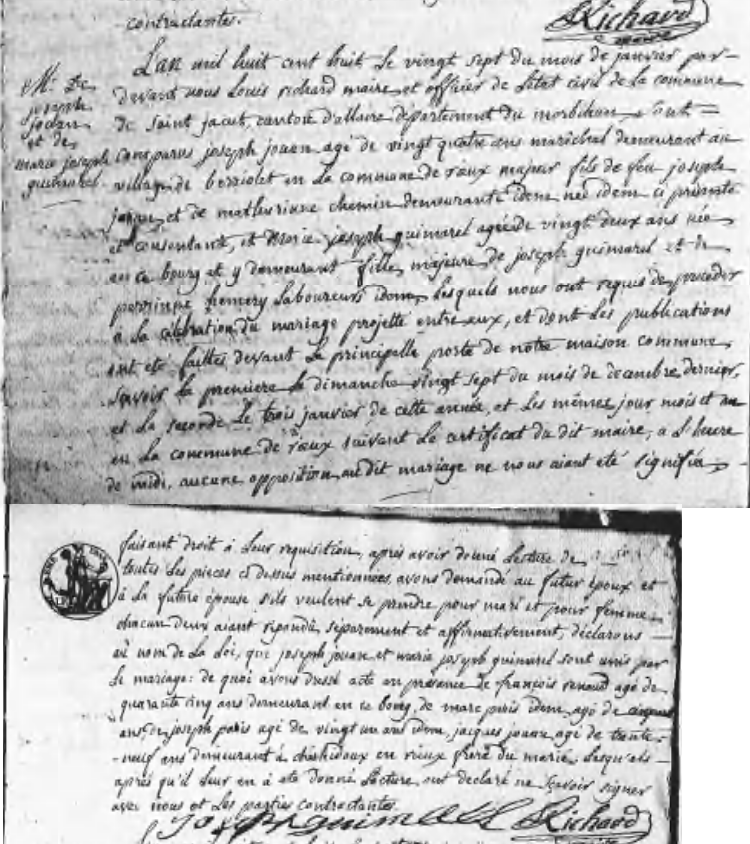 contractantes.
Richard
maire
L'an mil huit cent huit le vingt sept du mois de janvier par-
devant nous Louis richard maire et officier de l'état civil de la commune
de saint jacut, canton d'allaire département du morbihan, ont
M. De
joseph
jouan
et de
marie joseph
guimarel.
comparus joseph jouan agé de vingt quatre ans maréchal demeurant au
village de berriolet en la commune de rieux majeur fils de feu joseph
jouan et de mathurinne chemin demeurante idem né idem ci presente
et consentante, et Marie joseph guimarel agée de vingt deux ans née
en ce bourg et y demeurant fille majeure de joseph guimarel et de
perrinne hemery laboureurs idem, lesquels nous ont requis de proceder
à la celebration du mariage projetté entre eux, et dont les publications
ont eté faittes devant la principalle porte de notre maison commune,
sçavoir la premiere le dimanche vingt sept du mois de decembre dernier,
et la seconde le trois janvier de cette année, et les mêmes jour mois et an
en la commune de rieux suivant le certificat du dit maire, a l'heure
de midi, aucune opposition au dit mariage ne nous aiant eté signifiée
faisant droit à leur requisition, après avoir donné lecture de
toutes les pieces ci dessus mentionnées, avons demandé au futur époux et
à la future épouse s'ils veulent se prendre pour mari et pour femme
chacun deux aiant repondu séparement et affirmativement, déclarons
au nom de la loi, que joseph jouan et marie joseph guimarel sont unis par
le mariage: de quoi avons dressé acte en présence de françois renaud agé de
quarante cinq ans demeurant en ce bourg, de marc paris idem agé de cinquante
ans, de joseph paris agé de vingt un ans idem, jacques jouan agé de trente-
-neuf ans demeurant à en rieux frere du marié, lesquels
après qu'il leur en à eté donné lecture, ont declaré ne sçavoir signer
avec nous et les parties contractantes.
Richard